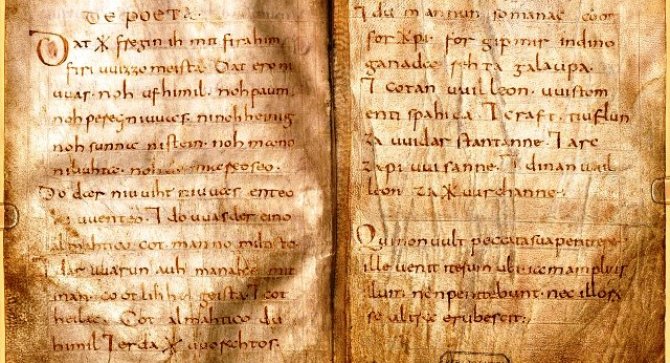 DE POETA
Dat ᛡ fregin ih mit firahim
firi uuizzo meista. Dat ero ni
uuas. noh ufhimil. noh paum
noh pereg ni uuas. ni nohheinig
noh sunna ni stein. noh mano
ni liuhta. noh der mareo seo.
Do dar niuuiht ni uuas enteo
ni uuenteo. ⁊ do uuas der eino
almahtico cot manno milti sto
⁊ dar uuarun auh manake mit
inan. cootlihhe geista. ⁊ cot
heilac. Cot almahtico du
himil ⁊ erda ᛡ uuorahtos.
⁊ du mannun so manac coot
for ᛡ pi. for gip mir in dino
ganada rehta galaupa.
⁊ cotan uuilleon. uuistom
enti spahida. ⁊ craft. tiuflun
za uuidar stantanne. ⁊ arc
za pi uuisanne. ⁊ dinan uuil
leon za ᛡ uurchanne.
Qui non uult peccata sua penitere
ille uenit iterum ubi iam amplius
illum non penitebunt. nec illorum
se ultra erubescit.